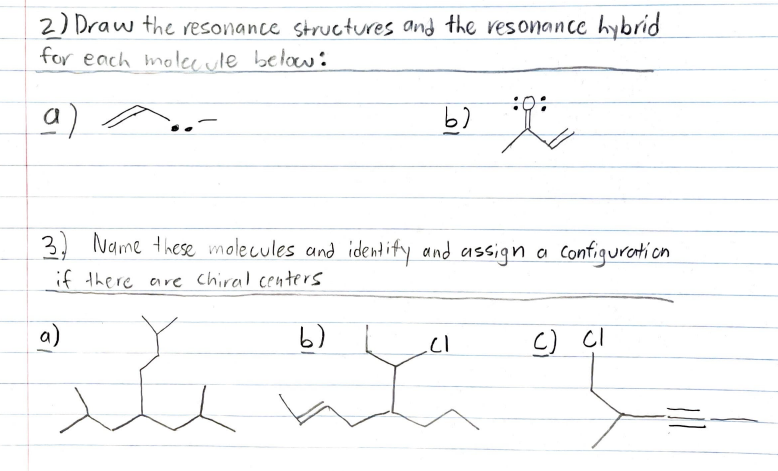 2) Draw the resonance structures and the resonance hybrid
for each molecule below:
a)
b) :O:
3) Name these molecules and identify and assign a configuration
if there are chiral centers
a)
b) Cl
c) Cl